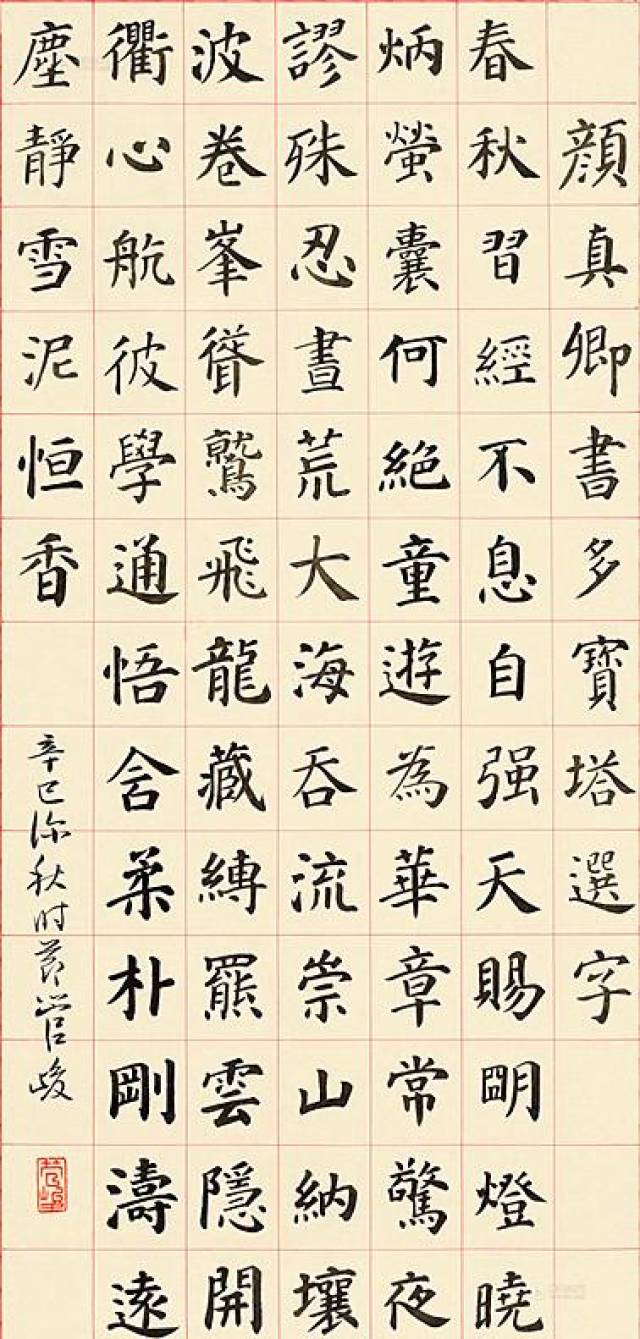 顏真卿書多寶塔選字
春秋習經不息自强天賜明燈曉
炳螢囊何絕童遊為華章常驚夜
謬殊忍晝荒大海吞流崇山納壤
波卷峯聳鷲飛龍藏縛羆雲隱開
衢心航彼學通悟含柔朴剛濤遠
塵靜雪泥恒香
辛巳深秋时节管峻